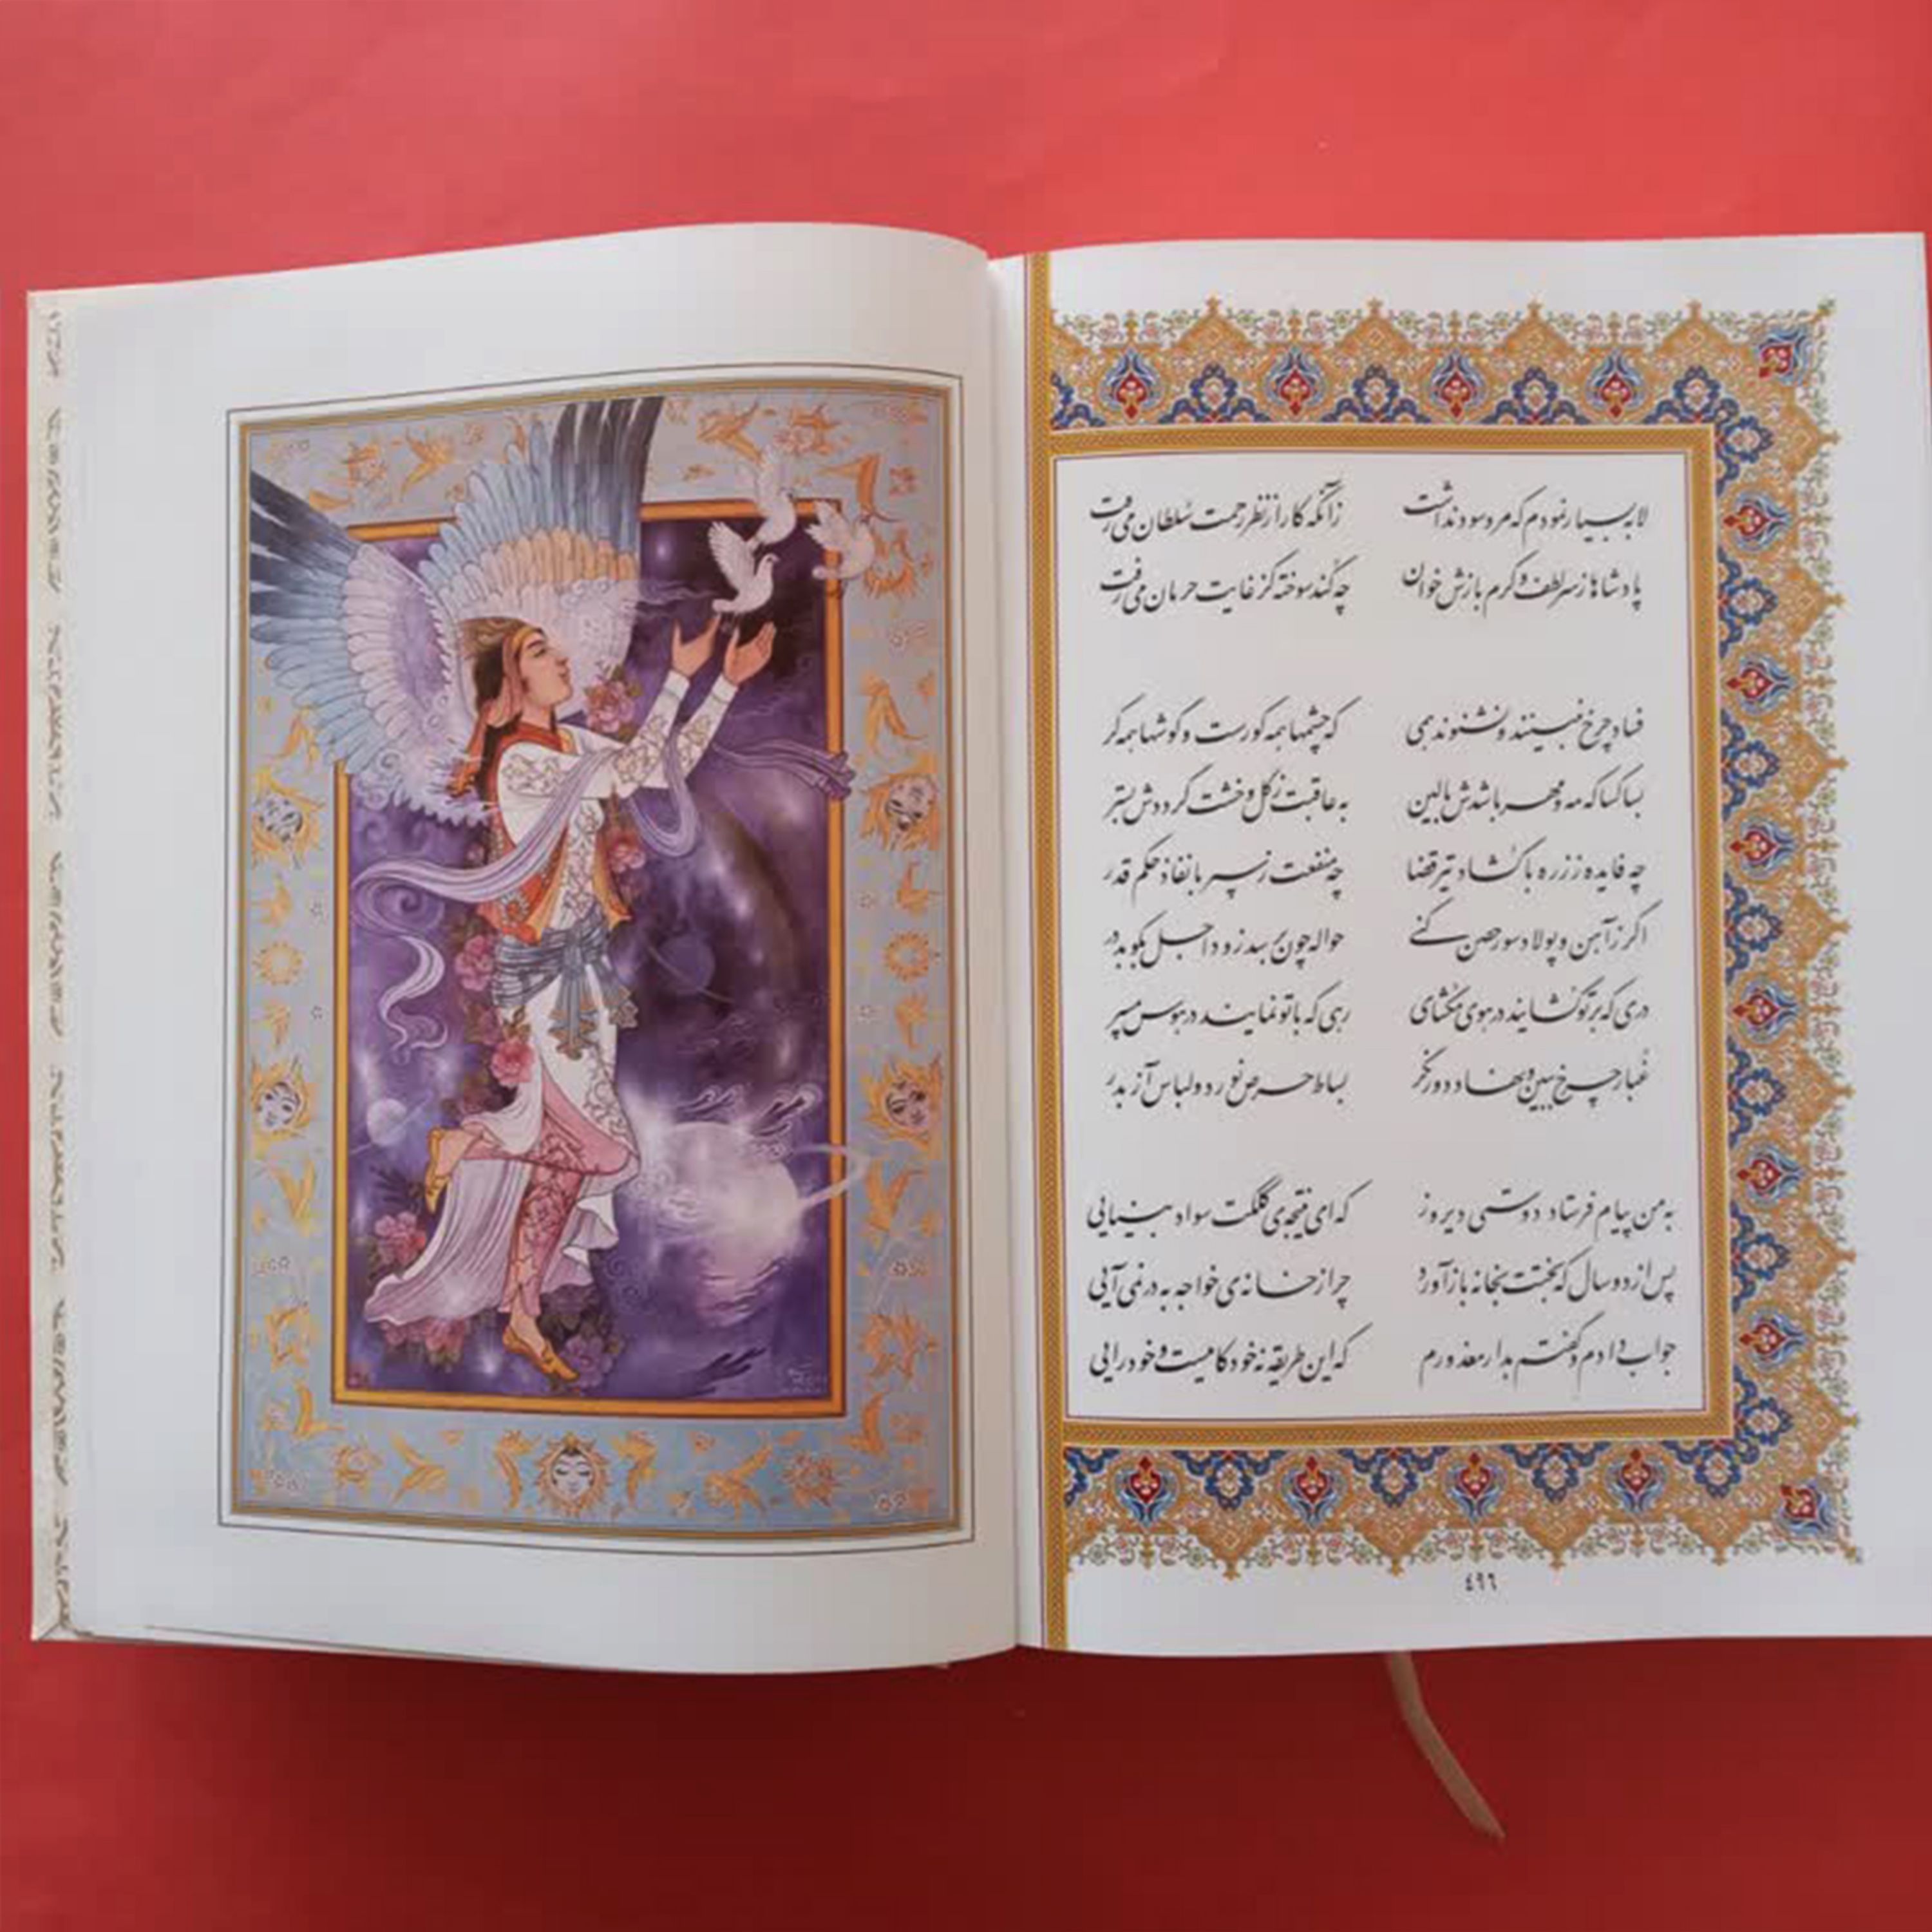 لابه بسیار نمودم که مرو سود نداشت زآنکه کار از نظر رحمت سلطان می‌رفت
پادشاها ز سر لطف و کرم بازش خوان چه کند سوخته کز غایت حرمان می‌رفت
فساد چرخ نبینند و نشنوند همی که چشمها همه کورست و گوشها همه کر
بسا کسا که مه و مهر باشدش بالین به عاقبت ز گل و خشت گرددش بستر
چه فایده ز زره با گشاد تیر قضا چه منفعت ز سپر با نفاذ حکم قدر
اگر ز آهن و پولاد سور حصن کنی حواله چون برسد زود اجل بکوبد در
دری که بر تو گشایند در هوی مگشای رهی که با تو نمایند در هوس مسپر
غبار چرخ ببین و نهاد دور نگر بساط حرص نورد و لباس آز بدر
به من پیام فرستاد دوستی دیروز که ای نتیجه‌ی کلکت سواد بینایی
پس از دو سال که بختت بخانه باز آورد چرا ز خانه‌ی خواجه به در نمی‌آیی
جواب دادم و گفتم بدار معذورم که این طریقه نه خودکامیست و خودرایی
٤٩٦